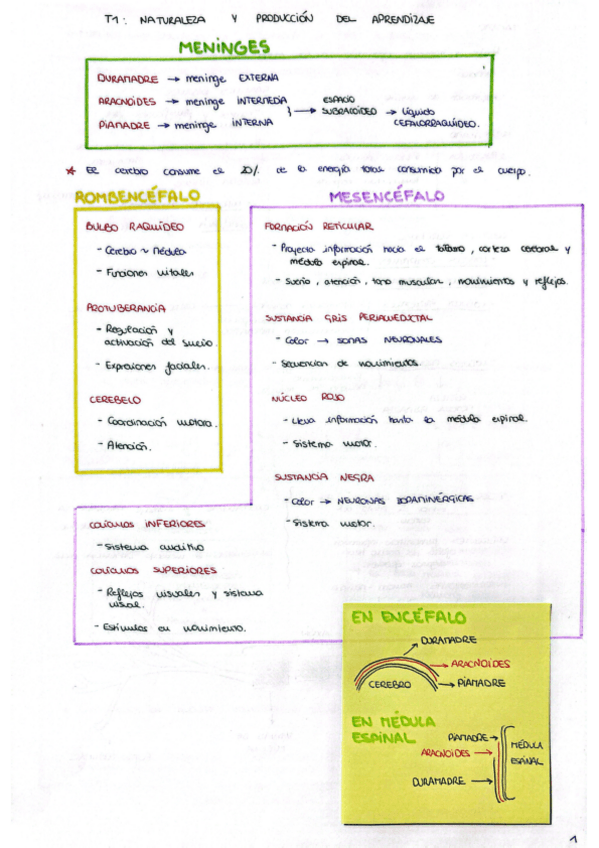 T1: NATURALEZA Y PRODUCCIÓN DEL APRENDIZAJE
MENINGES
DURAMADRE → meninge EXTERNA
ARACNOIDES → meninge INTERMEDIA
PIAMADRE → meninge INTERNA
} → ESPACIO
SUBRACOIDEO → LÍQUIDO
CEFALORRAQUÍDEO.
* El cerebro consume el 20% de la energía total consumida por el cuerpo.
ROMBENCÉFALO
BULBO RAQUÍDEO
- Cerebro ~ Médula
- Funciones vitales
PROTUBERANCIA
- Regulación y
activación del sueño.
- Expresiones faciales.
CEREBELO
- Coordinación motora.
- Atención.
MESENCÉFALO
FORMACIÓN RETICULAR
- Proyecta información hacia el tálamo, corteza cerebral y
médula espinal.
- Sueño, atención, tono muscular, movimientos y reflejos.
SUSTANCIA GRIS PERIAUEDUCTAL
- Color → SOMAS NEURONALES
- Secuencias de movimientos.
NÚCLEO ROJO
- Lleva información hasta la médula espinal.
- Sistema motor.
SUSTANCIA NEGRA
- Color → NEURONAS DOPAMINÉRGICAS
- Sistema motor.
COLÍCULOS INFERIORES
- Sistema auditivo
COLÍCULOS SUPERIORES
- Reflejos visuales y sistema
visual.
- Estímulos en movimiento.
EN ENCÉFALO
DURAMADRE
ARACNOIDES
CEREBRO → PIAMADRE
EN MÉDULA
ESPINAL
PIAMADRE →
ARACNOIDES →
DURAMADRE →
MÉDULA
ESPINAL
1